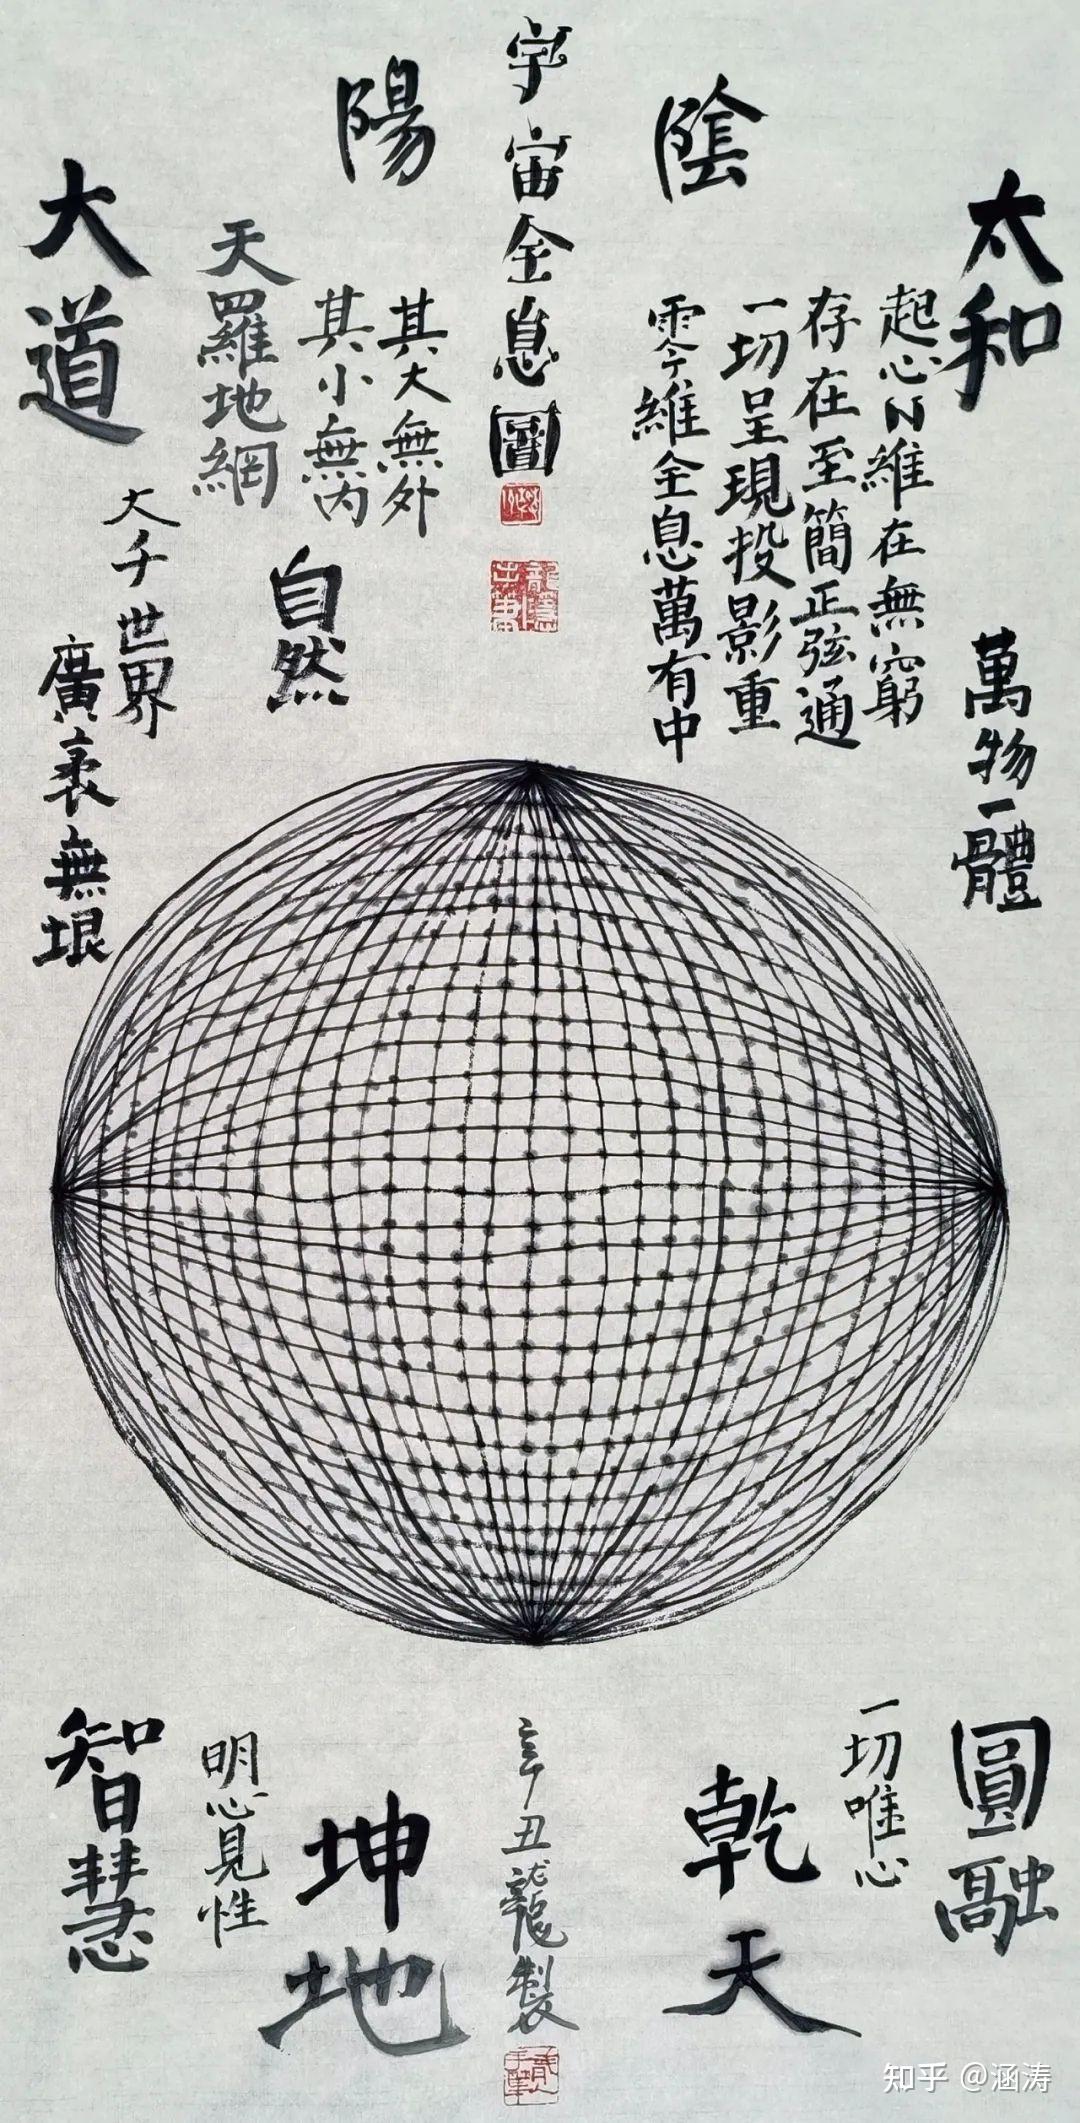 宇宙全息圖
陰
陽
太和
起心N維在無窮
存在至簡正弦通
一切呈現投影重
零維全息萬有中
萬物一體
其大無外
其小無内
天羅地網
自然
大道
大千世界
廣袤無垠
圓融
一切唯心
乾天
辛丑龍製
坤地
明心見性
智慧
知乎 @涵涛